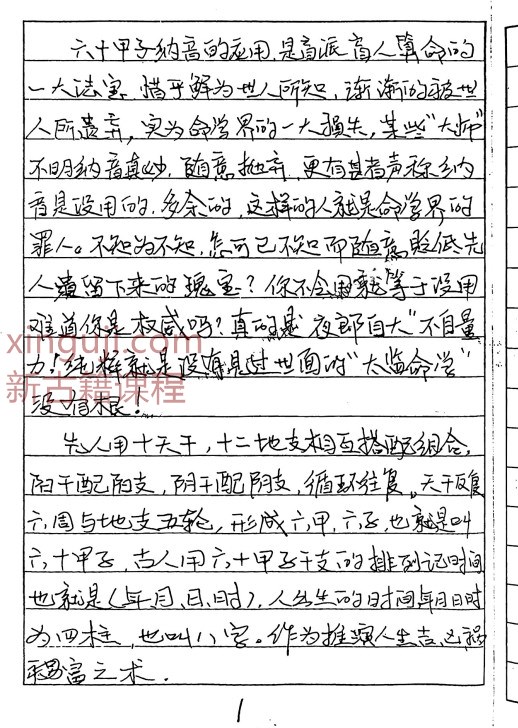 六十甲子纳音的应用,是盲派盲人算命的
一大法宝.惜乎鲜为世人所知,渐渐的被世
人所遗弃,实为命学界的一大损失,某些"大师"
不明纳音真妙.随意抛弃.更有甚者声称纳
音是没用的.多余的.这样的人就是命学界的
罪人。不知为不知,怎可己不知而随意贬低先
人遗留下来的瑰宝?你不会用就等于没用
难道你是权威吗?真的是"夜郎自大"不自量
力!纯粹就是没有见过世面的"太监命学"
没有根!
先人用十天干,十二地支相互搭配组合,
阳干配阳支,阴干配阴支,循环往复。天干反复
六周与地支五轮,形成六甲.六子,也就是叫
六十甲子,古人用六十甲子干支的排列记时间
也就是(年、月、日、时),人出生的时间年月日时
为四柱,也叫八字。作为推算人生吉凶祸
福之术.
1
xinguji.com
新古籍课程